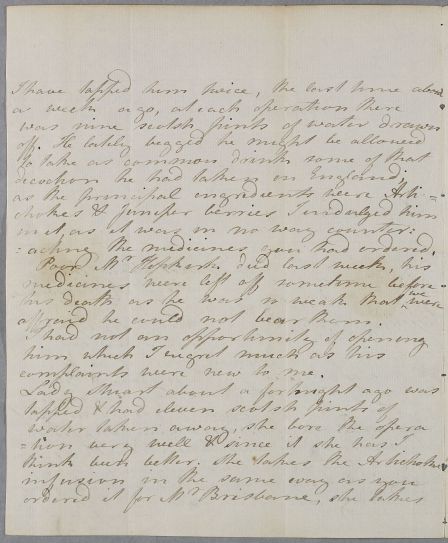 I have tapped him twice, the last time about
a week ago, at each operation there
was nine scotsh pints of water drawn
off. He lately begged he might be allowed
to take as common drink some of that
decoction he had taken in England,
as the principal ingredients were Arti=
chokes & juniper berries I indulged him
in it, as it was in no way counter:
:acting the medicines you had ordered.
Poor Mr died last week, his
medicines were left off sometime before
his death as he was so weak that we were
affraid he could not bear them.
I had not an opportunity of opening
him, which I regret much as his
complaints were new to me.
Lady Stuart about a fortnight ago was
tapped & had eleven scotsh pints of
water taken away, she bore the opera
=tion very well & since it she has I
think been better. She takes the Artichoke
infusion in the same way as you
ordered it for Mr Brisbane, she takes